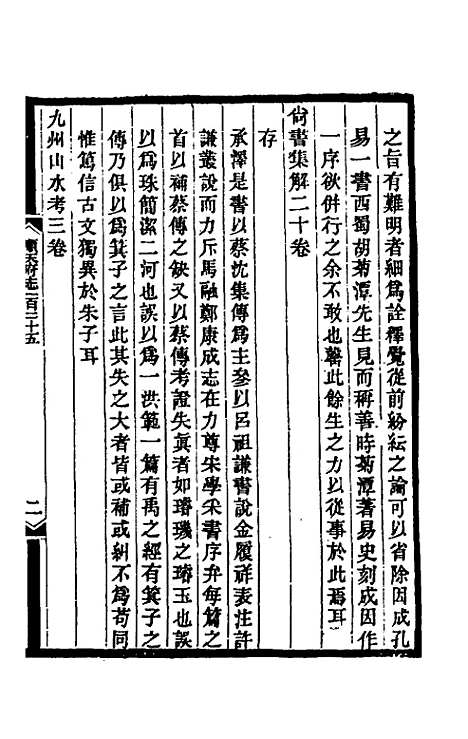 之旨有難明者細爲詮釋覺從前紛紜之論可以省除因成孔
易一書西蜀胡菊潭先生見而稱善時菊潭著易史刻成因作
一序欲併行之余不敢也罄此餘生之力以從事於此焉耳
尚書集解二十卷
存
承澤是書以蔡沈集傳爲主參以呂祖謙書說金履祥表注許
謙叢說而力斥馬融鄭康成志在力尊宋學采書序弁每篇之
首以補蔡傳之缺又以蔡傳考證失眞者如璿璣之璿玉也誤
以爲珠簡潔二河也誤以爲一洪範一篇有禹之經有箕子之
傳乃俱以爲箕子之言此其失之大者皆或補或糾不爲苟同
惟篤信古文獨異於朱子耳
九州山水考三卷
順天府志一百二十五
二